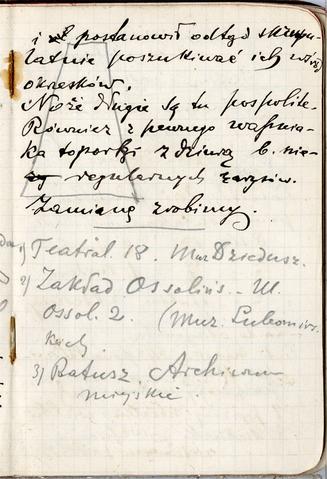 i postanowił odtąd skrupu-
latnie poszukiwać ich wśród
okresków.
Noże długie są tu pospolite.
Również z pewnego wapnia-
ka toporki z dziurą b. nie-
regularnych zarysów.
Zamianę zrobimy.
1) Teatral. 18. Muz Dziedusz.
2) Zakład Ossolińs. - Ul.
Ossol. 2. (Muz. Lubomirs.
kich
3) Ratusz. Archiwum
miejskie.